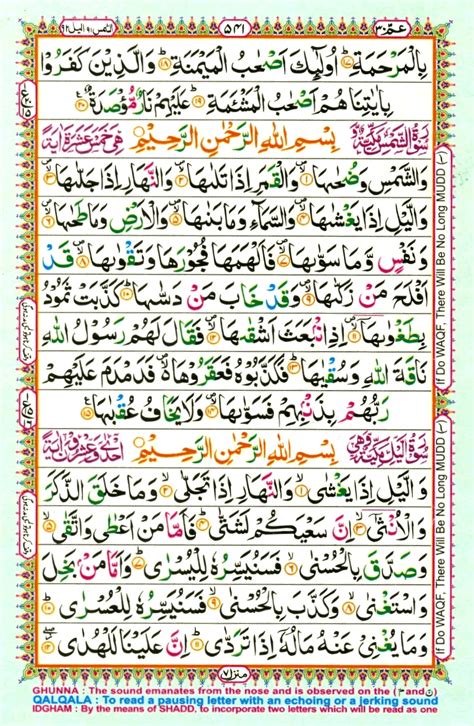 عمّ ٣٠ ٥٤١ الشمس ٩١ اليل ٩٢
بِالْمَرْحَمَةِ ﴿١٧﴾ أُولٰٓئِكَ أَصْحٰبُ الْمَيْمَنَةِ ﴿١٨﴾ وَالَّذِينَ كَفَرُوا
بِاٰيٰتِنَا هُمْ أَصْحٰبُ الْمَشْـَٔمَةِ ﴿١٩﴾ عَلَيْهِمْ نَارٌ مُّؤْصَدَةٌ ﴿٢٠﴾
سُوْرَةُ الشَّمْسِ مَكِّيَّةٌ بِسْمِ اللهِ الرَّحْمٰنِ الرَّحِيْمِ هِيَ خَمْسَ عَشْرَةَ اٰيَةً
وَالشَّمْسِ وَضُحٰىهَا ﴿١﴾ وَالْقَمَرِ إِذَا تَلٰىهَا ﴿٢﴾ وَالنَّهَارِ إِذَا جَلّٰىهَا ﴿٣﴾
وَالَّيْلِ إِذَا يَغْشٰىهَا ﴿٤﴾ وَالسَّمَآءِ وَمَا بَنٰىهَا ﴿٥﴾ وَالْأَرْضِ وَمَا طَحٰىهَا ﴿٦﴾
وَنَفْسٍ وَّمَا سَوّٰىهَا ﴿٧﴾ فَأَلْهَمَهَا فُجُوْرَهَا وَتَقْوٰىهَا ﴿٨﴾ قَدْ
أَفْلَحَ مَنْ زَكّٰىهَا ﴿٩﴾ وَقَدْ خَابَ مَنْ دَسّٰىهَا ﴿١٠﴾ كَذَّبَتْ ثَمُوْدُ
بِطَغْوٰىهَا ﴿١١﴾ إِذِ انْۢبَعَثَ أَشْقٰىهَا ﴿١٢﴾ فَقَالَ لَهُمْ رَسُوْلُ اللهِ
نَاقَةَ اللهِ وَسُقْيٰهَا ﴿١٣﴾ فَكَذَّبُوْهُ فَعَقَرُوْهَا فَدَمْدَمَ عَلَيْهِمْ
رَبُّهُمْ بِذَنْۢبِهِمْ فَسَوّٰىهَا ﴿١٤﴾ وَلَا يَخَافُ عُقْبٰهَا ﴿١٥﴾
سُوْرَةُ الَّيْلِ مَكِّيَّةٌ وَهِيَ بِسْمِ اللهِ الرَّحْمٰنِ الرَّحِيْمِ إِحْدٰى وَعِشْرُوْنَ اٰيَةً
وَالَّيْلِ إِذَا يَغْشٰى ﴿١﴾ وَالنَّهَارِ إِذَا تَجَلّٰى ﴿٢﴾ وَمَا خَلَقَ الذَّكَرَ
وَالْأُنْثٰى ﴿٣﴾ إِنَّ سَعْيَكُمْ لَشَتّٰى ﴿٤﴾ فَأَمَّا مَنْ أَعْطٰى وَاتَّقٰى ﴿٥﴾
وَصَدَّقَ بِالْحُسْنٰى ﴿٦﴾ فَسَنُيَسِّرُهُ لِلْيُسْرٰى ﴿٧﴾ وَأَمَّا مَنْۢ بَخِلَ
وَاسْتَغْنٰى ﴿٨﴾ وَكَذَّبَ بِالْحُسْنٰى ﴿٩﴾ فَسَنُيَسِّرُهُ لِلْعُسْرٰى ﴿١٠﴾
وَمَا يُغْنِيْ عَنْهُ مَالُهُٓ إِذَا تَرَدّٰى ﴿١١﴾ إِنَّ عَلَيْنَا لَلْهُدٰى ﴿١٢﴾
منزل ٧
If Do WAQF, There Will Be No Long MUDD (١)
If Do WAQF, There Will Be No Long MUDD (١)
GHUNNA : The sound emanates from the nose and is observed on the (ن and م)
QALQALA : To read a pausing letter with an echoing or a jerking sound
IDGHAM : By the means of SHADD, to incorporate two letters which will be read as one